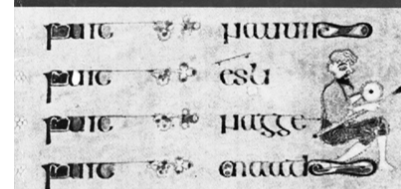 fuit nauum
fuit esli
fuit nagge
fuit